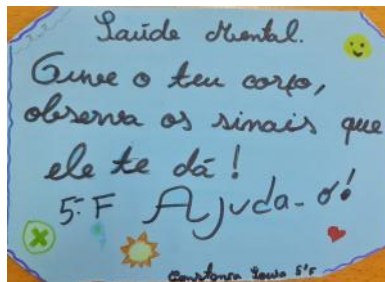 Saúde Mental.
Ouve o teu corpo,
observa os sinais que
ele te dá!
5.º F Ajuda-o!
Constança Sousa 5ºF